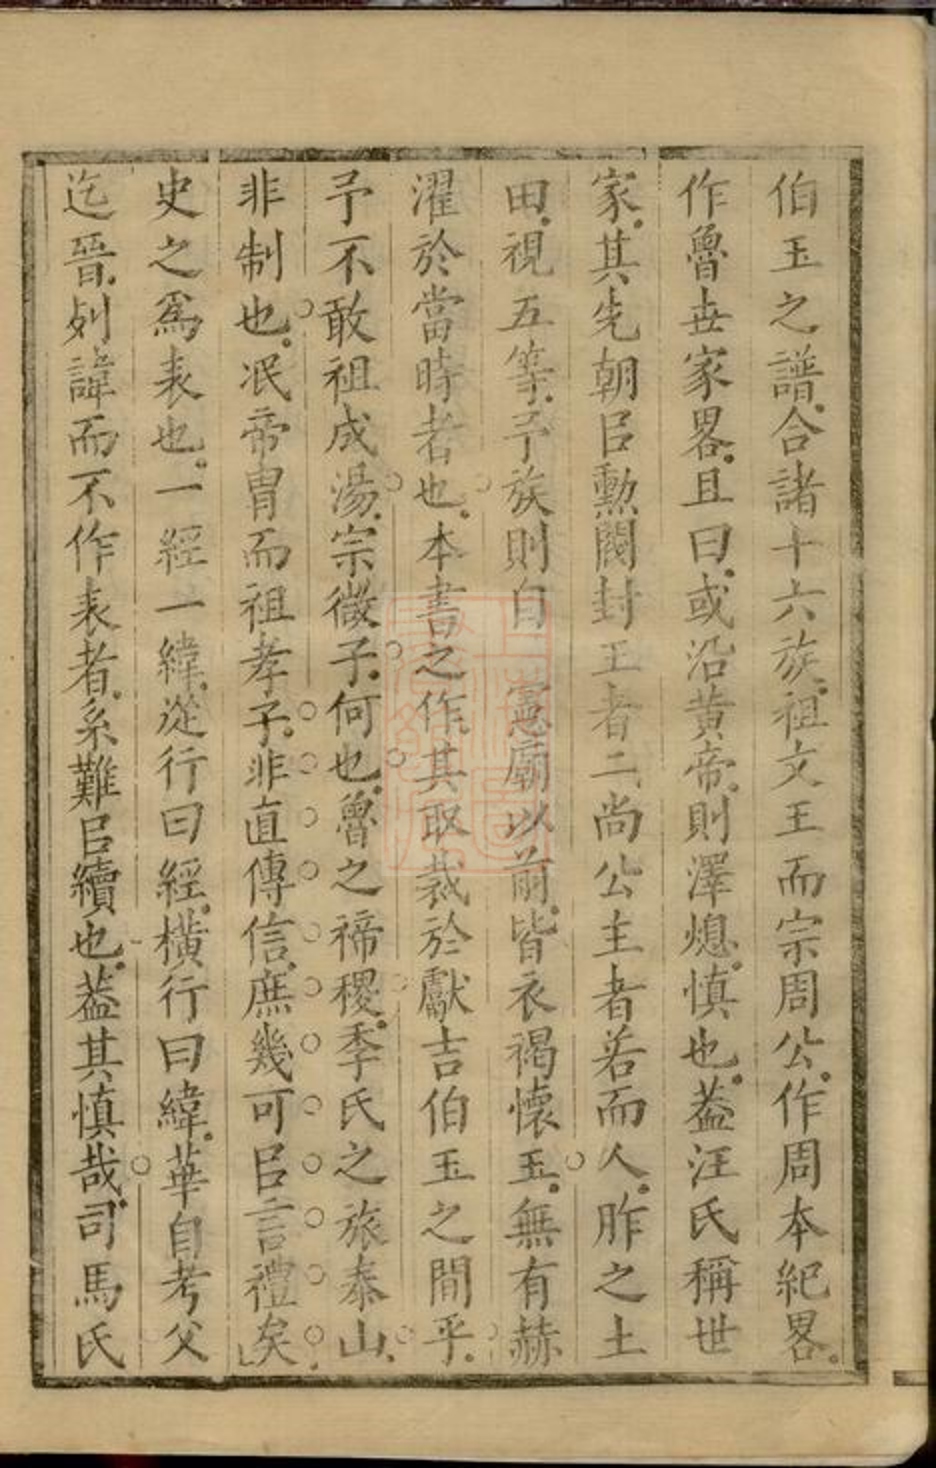 伯玉之譜合諸十六族祖文王而宗周公作周本紀畧
作魯世家畧且曰或沿黃帝則澤熄慎也葢汪氏稱世
家其先朝㠯勲閥封王者二尚公主者若而人胙之土
田視五等予族則自憲廟以前皆衣褐懷玉無有赫
濯於當時者也本書之作其取裁於獻吉伯玉之間乎
予不敢祖成湯宗微子何也魯之禘稷季氏之旅泰山
非制也冺帝胄而祖孝子非直傳信庶幾可㠯言禮矣
史之爲表也一經一緯從行曰經橫行曰緯華自考父
迄晉列諱而不作表者系難㠯續也葢其慎哉司馬氏